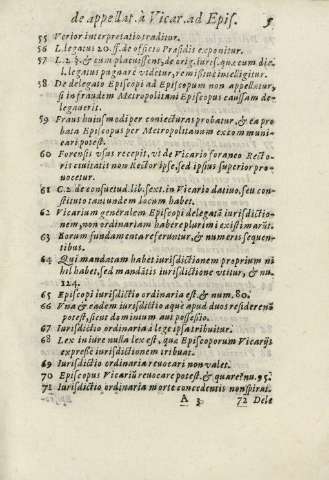 de appellat. à Vicar. ad Epis. 5
55 Verior interpretatio traditur.
56 L. legatus 20. ff. de officio Præsidis exponitur.
57 L. 2. §. & cum placuisset, de orig. iuris, quæ cum dic. l. legatus pugnare videtur, remissiuè intelligitur.
58 De delegato Episcopi ad Episcopum non appellatur, si in fraudem Metropolitani Episcopus caussam delegauerit.
59 Fraus huiusmodi per coniecturas probatur, & ea probata Episcopus per Metropolitanum excommunicari potest.
60 Forensis vsus recepit, vt de Vicario foraneo Rectoris ciuitatis non Rector ipse, sed ipsius superior prouocetur.
61 C. 2. de consuetud. lib. sext. in Vicario datiuo, seu constituto tantundem locum habet.
62 Vicarium generalem Episcopi delegatā iurisdictionem, non ordinariam habere plurimi existimārūt.
63 Horum fundamenta referuntur, & numeris sequentibus.
64 Qui mandatam habet iurisdictionem proprium nihil habet, sed mandatis iurisdictione vtitur, & nu. 124.
65 Episcopi iurisdictio ordinaria est. & num. 80.
66 Vna & eadem iurisdictio æque apud duos residere nō potest, sicut dominium aut possessio.
67 Iurisdictio ordinaria à lege ipsa tribuitur.
68 Lex in iure nulla lex est, qua Episcoporum Vicarijs expressè iurisdictionem tribuat.
69 Iurisdictio ordinaria reuocari non valet.
70 Episcopus Vicariū reuocare potest. & quare? nu. 95.
71 Iurisdictio ordinaria morte concedentis non spirat.
A 3 72 Dele